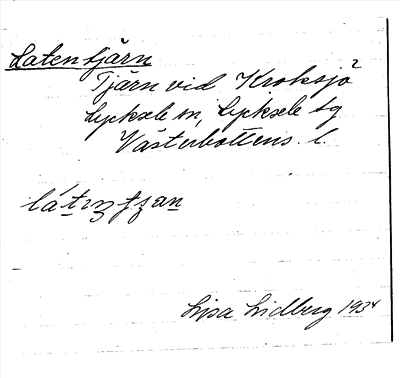 Latentjärn
Tjärn vid Kroksjö 2
Lycksele sn, Lycksele tg
Västerbottens l.
Lisa Lidberg 1934